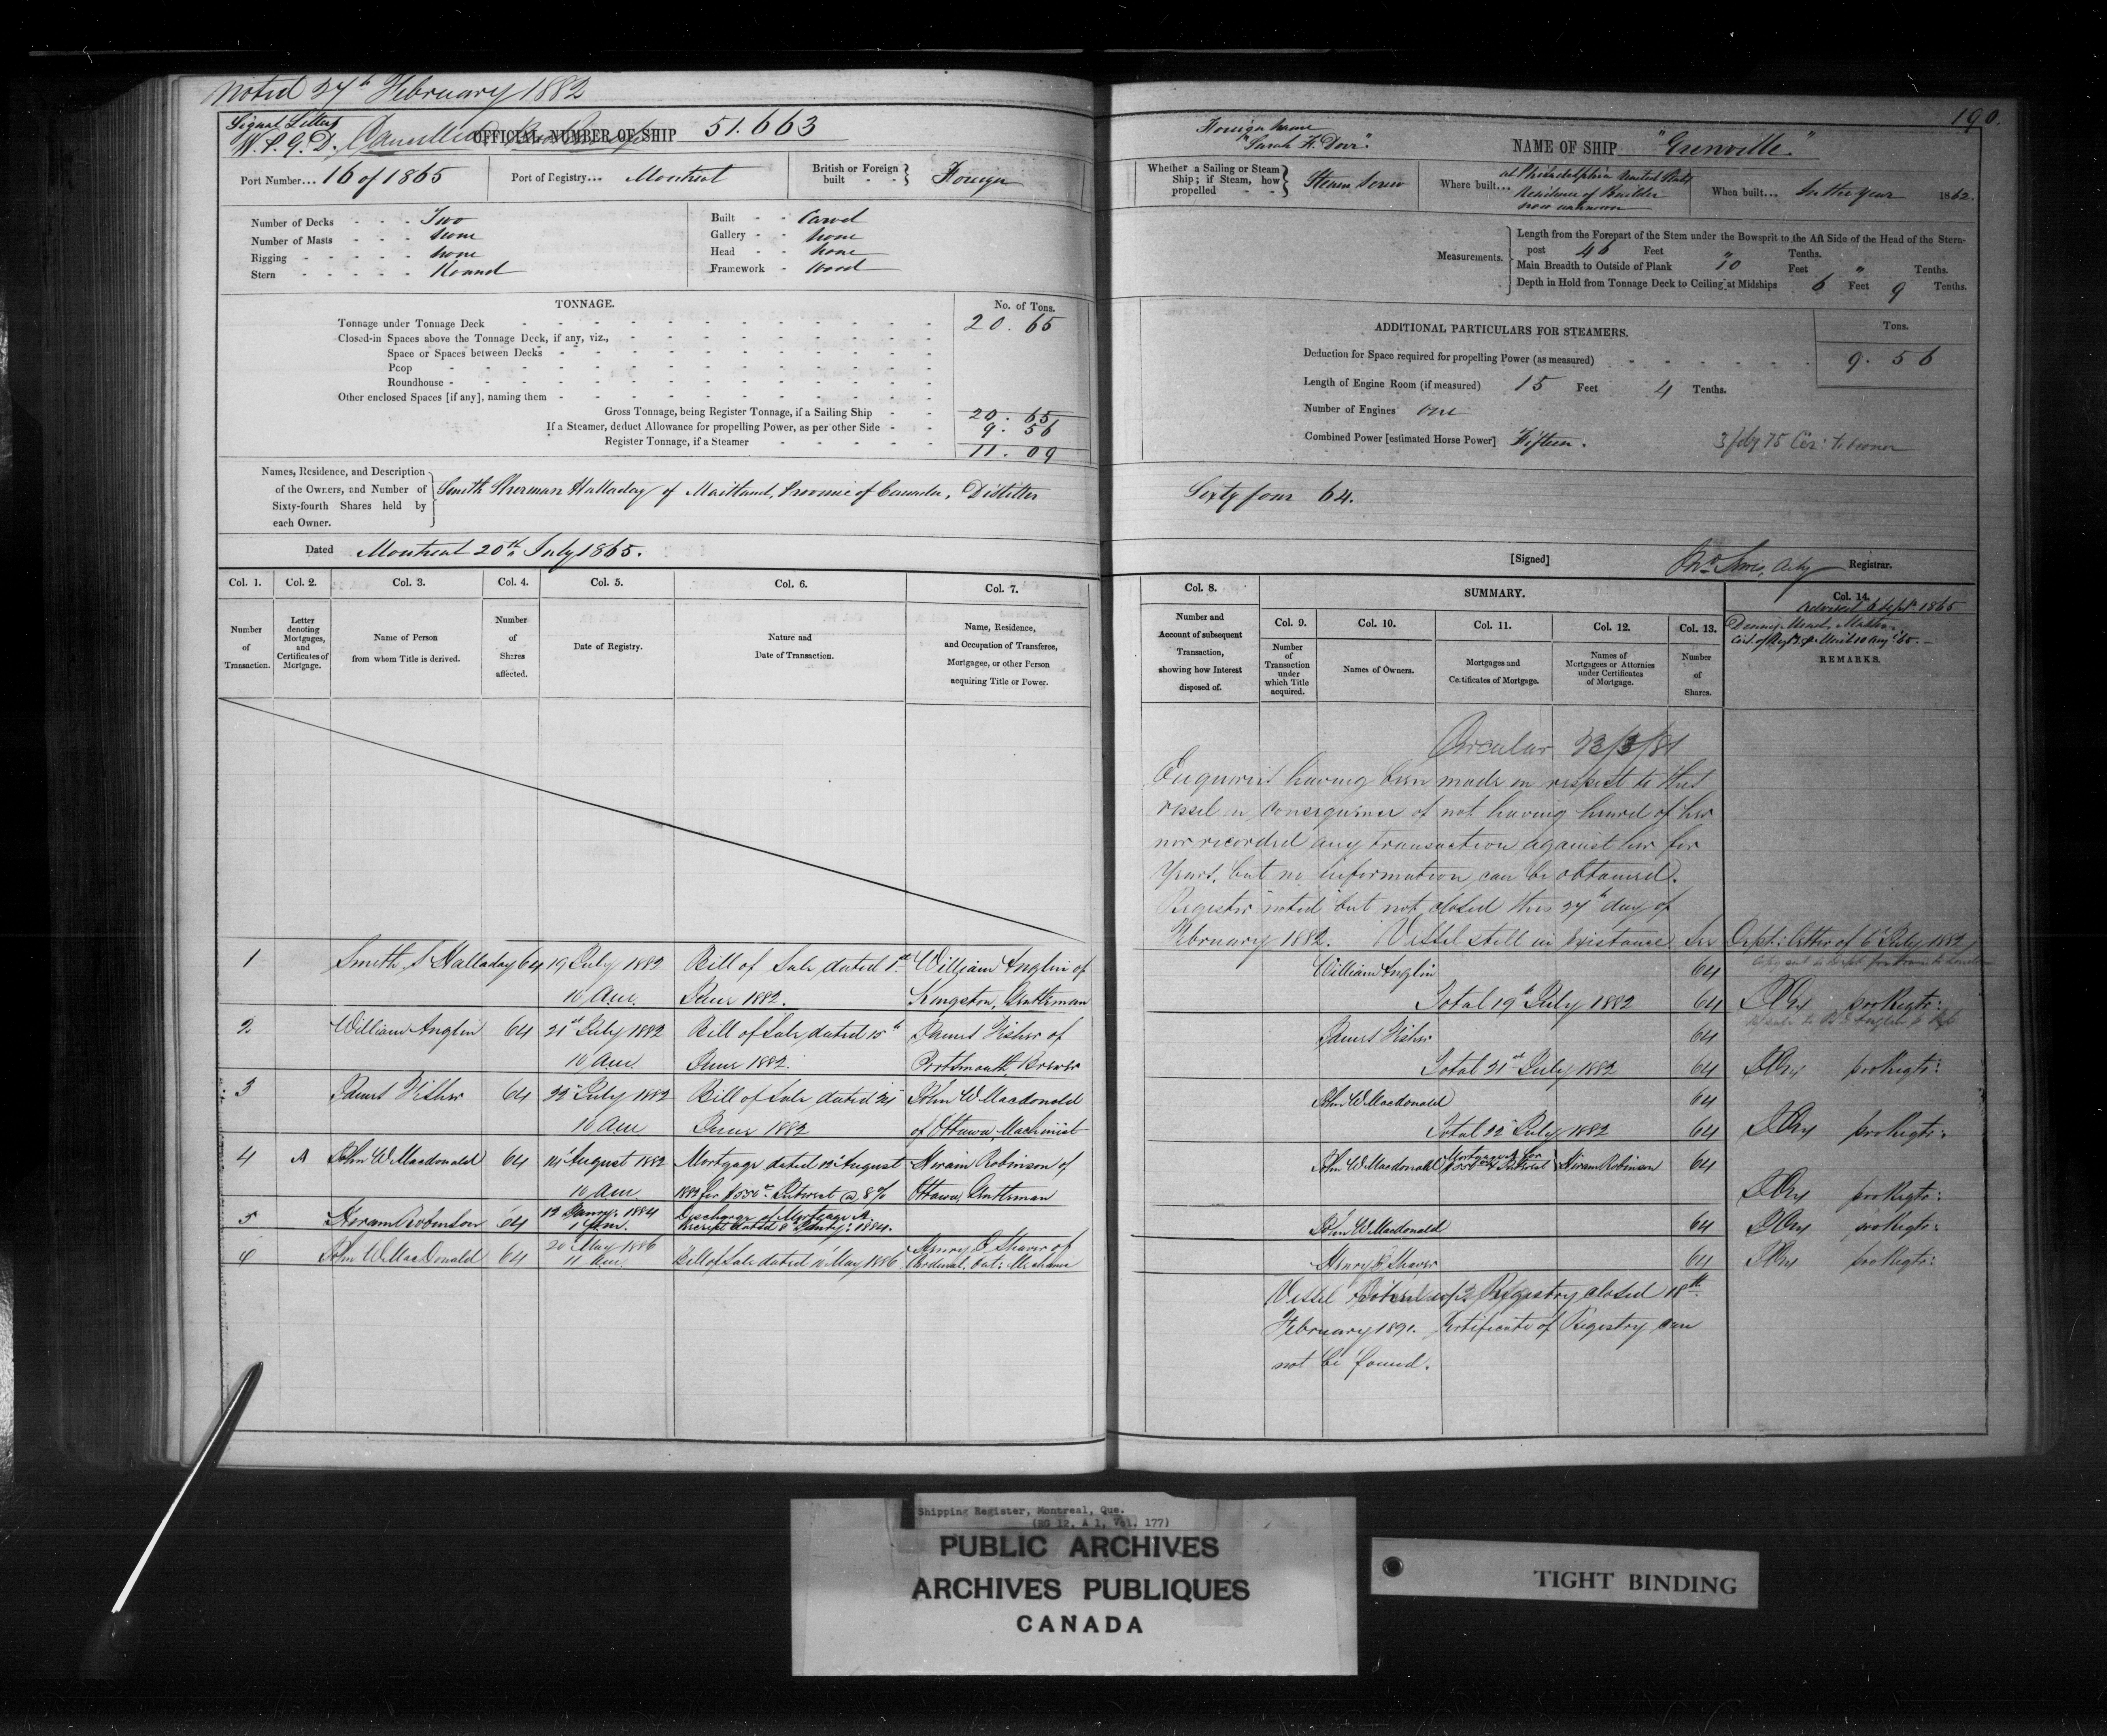 Noted 27th February 1882
Signal Letters
W.P.G.D. Cancelled
OFFICIAL NUMBER OF SHIP 51.663
Port Number... 16 of 1865 Port of Registry... Montreal British or Foreign built - - } Foreign
Number of Decks - - - Two
Number of Masts - - - none
Rigging - - - - - none
Stern - - - - - Round
Built - - Carvel
Gallery - - none
Head - - none
Framework - Wood
TONNAGE.
No. of Tons.
Tonnage under Tonnage Deck 20. 65
Closed-in Spaces above the Tonnage Deck, if any, viz.,
Space or Spaces between Decks
Poop
Roundhouse
Other enclosed Spaces [if any], naming them
Gross Tonnage, being Register Tonnage, if a Sailing Ship 20. 65
If a Steamer, deduct Allowance for propelling Power, as per other Side 9. 56
Register Tonnage, if a Steamer 11. 09
Names, Residence, and Description
of the Owners, and Number of
Sixty-fourth Shares held by
each Owner.
Smith Sherman Halladay of Maitland, Province of Canada, Distiller
Dated Montreal 20th July 1865.
Col. 1. Col. 2. Col. 3. Col. 4. Col. 5. Col. 6. Col. 7.
Number of Transaction.
Letter denoting Mortgages, and Certificates of Mortgage.
Name of Person from whom Title is derived.
Number of Shares affected.
Date of Registry.
Nature and Date of Transaction.
Name, Residence, and Occupation of Transferee, Mortgagee, or other Person acquiring Title or Power.
1 Smith S Halladay 64 19 July 1882 Bill of Sale dated 1st William Anglin of
10 a.m. June 1882. Kingston, Gentleman
2 William Anglin 64 21st July 1882 Bill of Sale dated 15th James Fisher of
10 a.m. June 1882. Portsmouth, Brewer
3 James Fisher 64 22d July 1882 Bill of Sale dated 24 John W Macdonald
10 a.m. June 1882 of Ottawa, Machinist
4 A John W Macdonald 64 14 August 1882 Mortgage dated 12 August Hiram Robinson of
10 a.m. 1882 for $550 Interest @ 8% Ottawa, Gentleman
5 Hiram Robinson 64 12 Jany: 1884 Discharge of Mortgage A
1 p.m. Receipt dated 9 Jany: 1884.
6 John W MacDonald 64 20 May 1886 Bill of Sale dated 10 May 1886 Henry P Shaver of
11 a.m. Cardinal, Ont: Mechanic
190.
Foreign name
"Sarah F. Dorr".
NAME OF SHIP "Grenville"
Whether a Sailing or Steam Ship; if Steam, how propelled - - } Steam Screw
Where built... at Philadelphia United States
Residence of Builder
now unknown
When built... In the year 1862.
Measurements.
Length from the Forepart of the Stem under the Bowsprit to the Aft Side of the Head of the Stern-
post 46 Feet " Tenths.
Main Breadth to Outside of Plank 10 Feet " Tenths.
Depth in Hold from Tonnage Deck to Ceiling at Midships 6 Feet 9 Tenths.
ADDITIONAL PARTICULARS FOR STEAMERS.
Tons.
Deduction for Space required for propelling Power (as measured) 9. 56
Length of Engine Room (if measured) 15 Feet 4 Tenths.
Number of Engines one
Combined Power [estimated Horse Power] Fifteen.
Sixty four 64.
[Signed] Registrar.
Col. 8.
Number and Account of subsequent Transaction, showing how Interest disposed of.
SUMMARY.
Col. 9. Col. 10. Col. 11. Col. 12. Col. 13. Col. 14.
Number of Transaction under which Title acquired.
Names of Owners.
Mortgages and Certificates of Mortgage.
Names of Mortgagees or Attornies under Certificates of Mortgage.
Number of Shares.
Advised 6 Sept 1865
REMARKS.
Circular 23/3/81
Enquiries having been made in respect to this
vessel in consequence of not having heard of her
nor recorded any transaction against her for
years, but no information can be obtained.
Register noted but not closed this 27th day of
February 1882. Vessel still in existance. See Dept: letter of 6 July 1882
William Anglin 64
Total 19th July 1882 64
James Fisher 64
Total 21st July 1882 64
John W Macdonald 64
Total 22d July 1882 64
John W Macdonald Mortgaged for $550 & Interest Hiram Robinson 64
John W Macdonald 64
Henry P Shaver 64
Vessel Registry closed 18th
February 1891. Certificate of Registry can
not be found.
Shipping Register, Montreal, Que.
(RG 12, A 1, Vol. 177)
PUBLIC ARCHIVES
ARCHIVES PUBLIQUES
CANADA
TIGHT BINDING